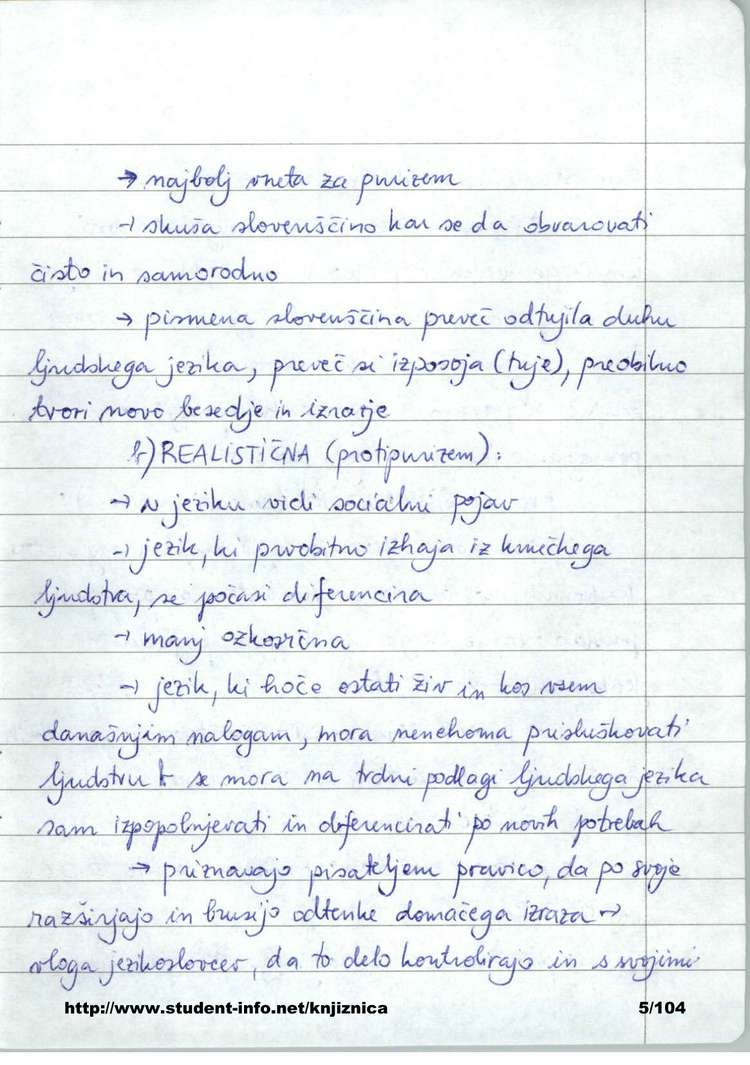 → najbolj vneta za purizem
→ skuša slovenščino kar se da obvarovati
čisto in samorodno
→ pismena slovenščina preveč odtujila duhu
ljudskega jezika, preveč si izposoja (tuje), preobilno
tvori novo besedje in izrazje
b) REALISTIČNA (protipurizem):
→ v jeziku vidi socialni pojav
→ jezik, ki prvobitno izhaja iz kmečkega
ljudstva, se počasi diferencira
→ manj ozkosrčna
→ jezik, ki hoče ostati živ in kos vsem
današnjim nalogam, mora nenehoma prisluškovati
ljudstvu se mora na trdni podlagi ljudskega jezika
sam izpopolnjevati in diferencirati po novih potrebah
→ priznavajo pisateljem pravico, da po svoje
razširjajo in brusijo odtenke domačega izraza →
vloga jezikoslovcev, da to delo kontrolirajo in s svojimi
http://www.student-info.net/knjiznica 5/104